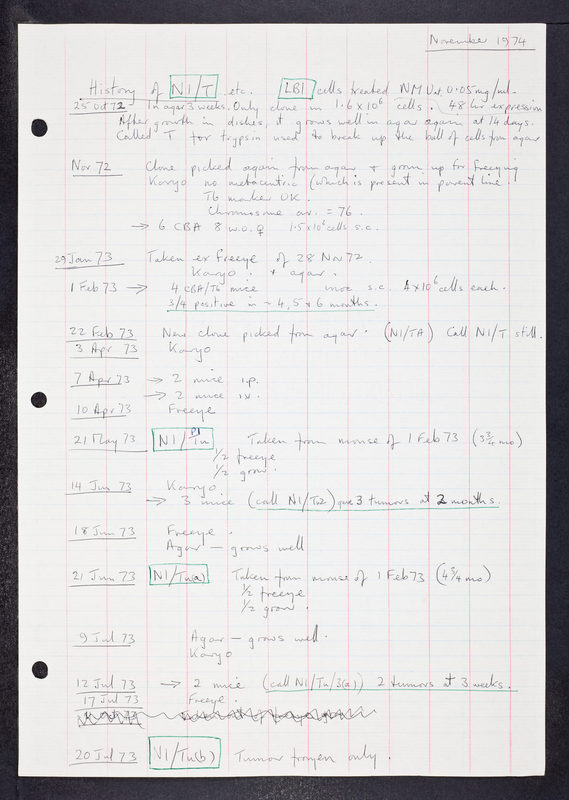 November 1974
History of N1/T etc. LB1 cells treated NMUut 0.05mg/ml.
25 Oct 72 In agar 3 weeks. Only clone in 1.6 x 10⁶ cells. 48 hr expression
After growth in dishes, it grows well in agar again at 14 days.
Called T for trypsin used to break up the ball of cells from agar
Nov 72 Clone picked again from agar + grown up for freezing
Karyo no metacentric (which is present in parent line.
T6 marker OK.
Chromosome av. = 76.
→ 6 CBA 8 w.o. ♀ 1.5 x 10⁶ cells s.c.
29 Jan 73 Taken ex Freeze of 28 Nov 72.
Karyo. + agar.
1 Feb 73 → 4 CBA/T6 mice inoc s.c. 4 x 10⁶ cells each.
3/4 positive in ~ 4, 5 + 6 months.
22 Feb 73 New clone picked from agar. (N1/TA) Call N1/T still.
3 Apr 73 Karyo
7 Apr 73 → 2 mice i.p.
→ 2 mice i.v.
10 Apr 73 Freeze
21 May 73 N1/P1 Tu Taken from mouse of 1 Feb 73 (3¾ mo)
½ freeze
½ grow.
14 Jun 73 Karyo
→ 3 mice (call N1/Tu2) gave 3 tumors at 2 months.
18 Jun 73 Freeze.
Agar — grows well
21 Jun 73 N1/Tu(a) Taken from mouse of 1 Feb 73 (4¾ mo)
½ freeze
½ grow.
9 Jul 73 Agar — grows well.
Karyo
12 Jul 73 → 2 mice (call N1/Tu/3(a)) 2 tumors at 3 weeks.
17 Jul 73 Freeze.
20 Jul 73 N1/Tu(b) Tumor frozen only.